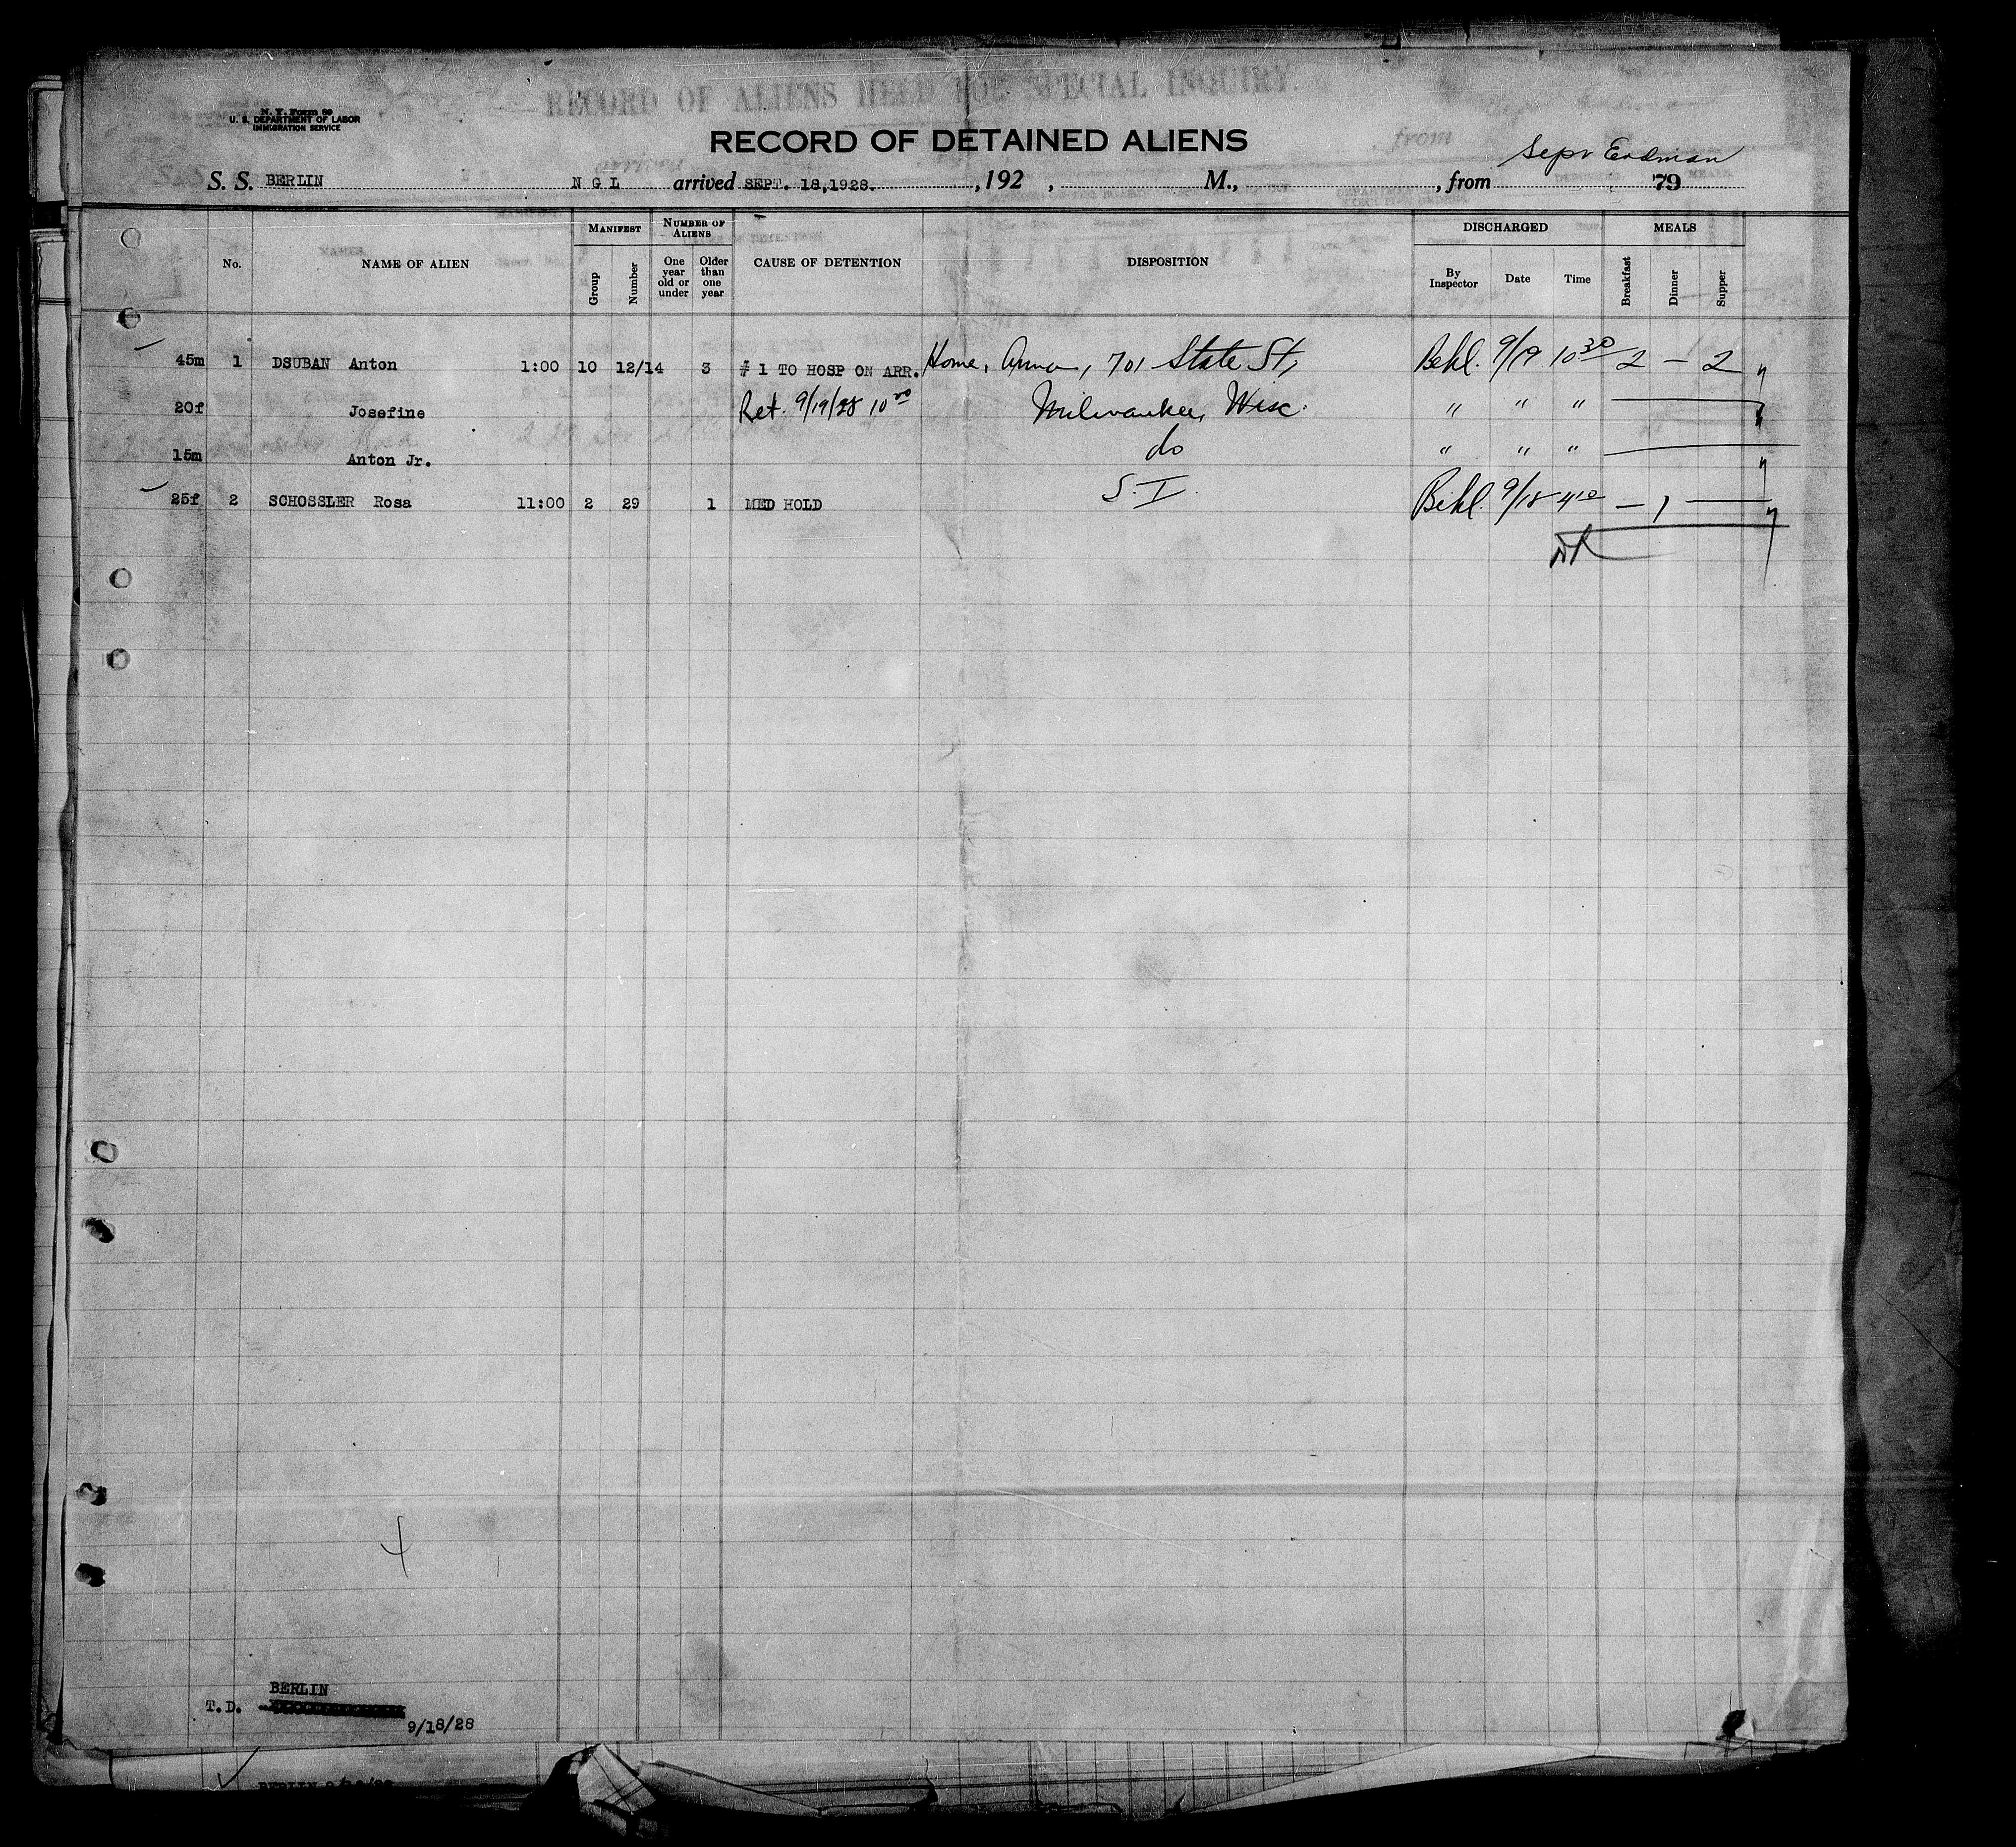 RECORD OF ALIENS HELD FOR SPECIAL INQUIRY.
N. Y. Form 89
U. S. DEPARTMENT OF LABOR
IMMIGRATION SERVICE
RECORD OF DETAINED ALIENS
S. S. BERLIN N G L arrived SEPT. 18,1928. ,192 , M., , from 79
MANIFEST NUMBER OF ALIENS DISCHARGED MEALS
No. NAME OF ALIEN Group Number One year old or under Older than one year CAUSE OF DETENTION DISPOSITION By Inspector Date Time Breakfast Dinner Supper
45m 1 DSUBAN Anton 1:00 10 12/14 3 # 1 TO HOSP ON ARR. Home, Anna, 701 State St, Behl. 9/19 10 30 2 — 2 "
20f Josefine Ret. 9/19/28 10 00 Milwaukee, Wisc. " " "
15m Anton Jr. do " " "
25f 2 SCHOSSLER Rosa 11:00 2 29 1 MED HOLD S.I. Behl. 9/18 4 10 — 1 —
4
BERLIN
T.D.
9/18/28